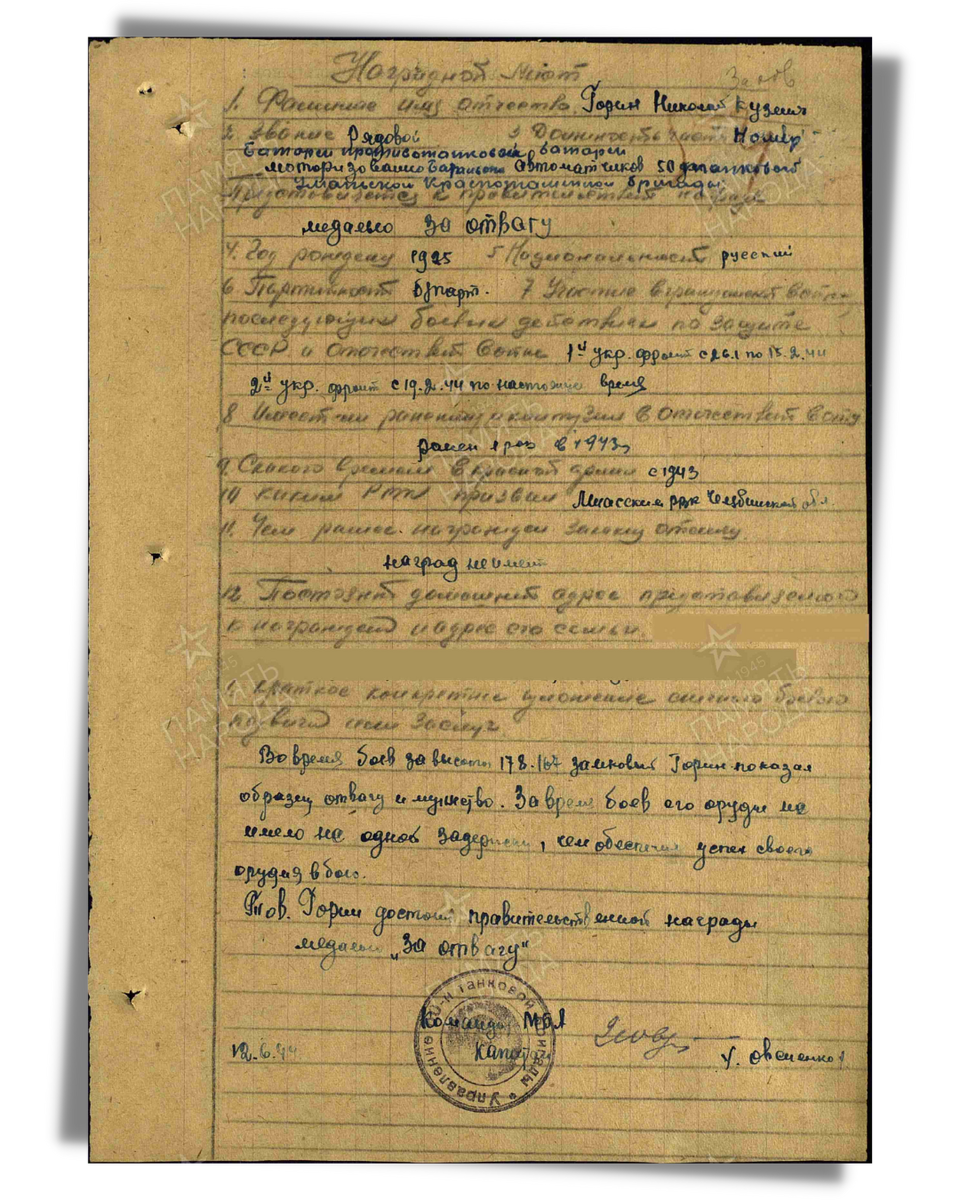 Наградной Лист
1. Фамилие имя отчество Горин Николай Кузмич
2. Звание Рядовой 3 Должность часть Номер
батареи противотанковой батареи
моторизованно батальона Автоматчиков 50 танковой
Уманьской Краснознаменной бригады
Представляется к правительствен награде
медалью За отвагу
4. Год рождения 1925 5 Национальност русский
6 Партийност б/парт. 7 Участие в гражданской войне,
последующих боевых действиях по защите
СССР и Отечествен войне 1й укр. фронт с 26.1 по 15.2.44
2й укр. фронт с 19.2.44 по настоящее время
8 Имеет ли ранения и контузии в отечествен войну
ранен 1 раз в 1943г
9. С какого времени в красной армии с 1943
10 Каким РВК призван Миасским рвк Челябинской обл.
11. Чем ранее награжден за какие отличия
наград не имеет
12. Постоянный домашний адрес представляемого
к награжден и адрес его семьи.
1. Краткое конкретное изложение личного боевого
подвига или заслуг.
Во время боев за высоты 178.167 замковый Горин показал
образец отвагу и мужество. За время боев его орудие не
имело не одной задержки, чем обеспечил успех своего
орудия в бою.
Тов. Горин достоин правительственной награды
медалью „За отвагу"
Командир МБА
Капитан
12.6.44 /. Овсиенко /
Управление 50-й танковой бригады
ПАМЯТЬ НАРОДА